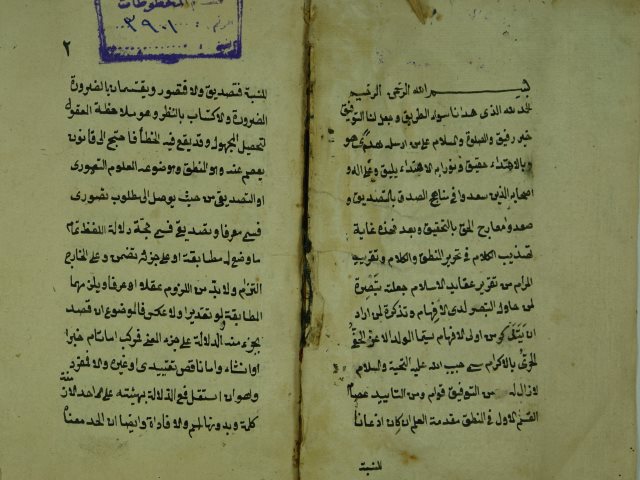 بسم الله الرحمن الرحيم
الحمد لله الذي هدانا سواء الطريق وجعل لنا التوفيق
خير رفيق والصلوة والسلام على من ارسله هدى هو
بالاهتداء حقيق ونورا به الاقتداء يليق وعلى اله و
اصحابه الذين سعدوا في مناهج الصدق بالتصديق و
صعدوا معارج الحق بالتحقيق وبعد فهذه غاية
تهذيب الكلام في تحرير المنطق والكلام وتقريب
المرام من تقرير عقايد الاسلام جعلته تبصرة
لمن حاول التبصر لدى الافهام وتذكرة لمن اراد
ان يتذكر من اولى الافهام سيما الولد الاعز الحفي
الحرى بالاكرام سمي حبيب الله عليه التحية والسلام
لا زال له من التوفيق قوام ومن التاييد عصام
القسم الاول في المنطق مقدمة العلم ان كان اذعانا
للنسبة
المخطوطات
٣٩٠١
٢
للنسبة فتصديق والا فتصور ويقتسمان بالضرورة
الضرورة والاكتساب بالنظر وهو ملاحظة المعقول
لتحصيل المجهول وقد يقع فيه الخطأ فاحتج الى قانون
يعصم عنه وهو المنطق وموضوعه المعلوم التصورى
او التصديقي من حيث يوصل الى مطلوب تصورى
فسمى معرفا وتصديقي فسمى حجة دلالة اللفظ على تمام
ما وضع له مطابقة او على جزئه تضمن وعلى الخارج
التزام ولا بد من اللزوم عقلا او عرفا ويلزمهما
المطابقة ولو تقديرا ولا عكس فالموضوع ان قصد
بجزء منه الدلالة على جزء المعنى فمركب اما تام خبر
او انشاء واما ناقص تقييدى او غيره والا فمفرد
وهو ان استقل فمع الدلالة بهيئته على احد الازمنة
كلمة وبدونها اسم والا فاداة وايضا ان اتحد معناه